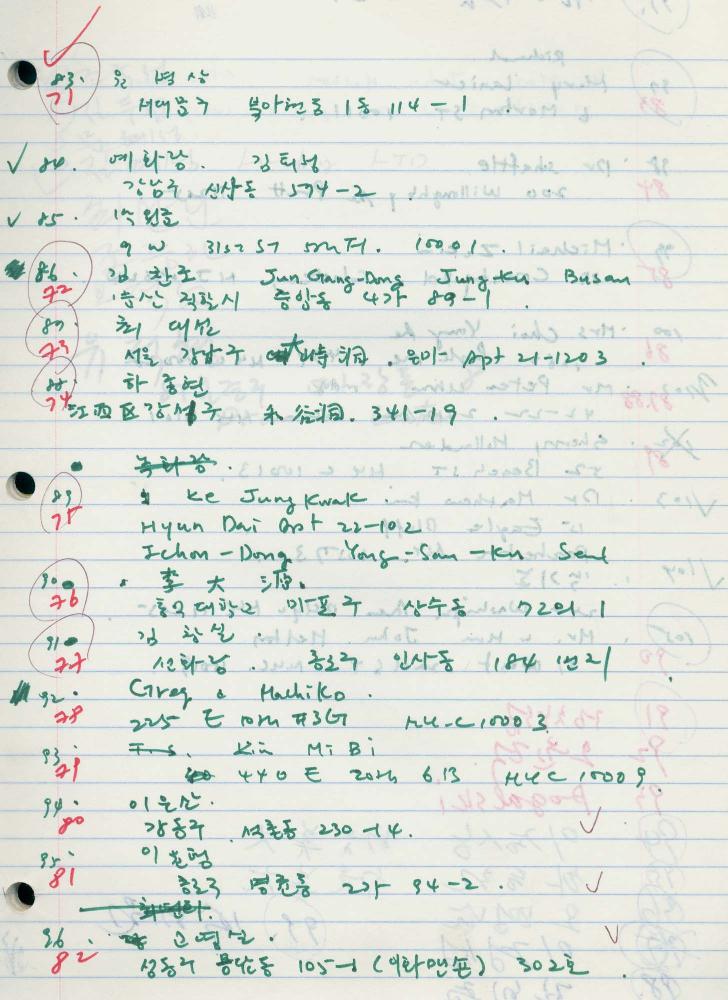 83. 윤 병 상
71 서대문구 북아현동 1동 114-1
84. 예화랑. 김태성
강남구 신사동 574-2
85.
9 W 31st ST 5th Fl. 10001.
86. 김찬조 Jung Gang-Dong Jung-Ku Busan
72 직할시 중앙동 4가 89-1
87. 최 대섭
73 서울 강남구 大峙洞. 은마 Apt 21-1203
88. 하종현
74 341-19
녹화랑.
89 Ke Jung Kwak.
75 Hyun Dai Apt 22-102
Ichon-Dong, Yong-San-Ku Seoul
90. 李 大 源.
76 홍익대학교 마포구 상수동 72의 1
91 김 창실.
77 선화랑. 종로구 인사동 184 번지
92. Greg & Machiko.
78 225 E 10th #3G N.Y.C 10003
93. Kim Mi Bi
79 440 E 20th 6B NYC 10009.
94. 이운산.
80 강동구 석촌동 230-14.
95.
81 종로구 2가 94-2.
96.
82 성동구 105-1 (이화맨숀) 302호